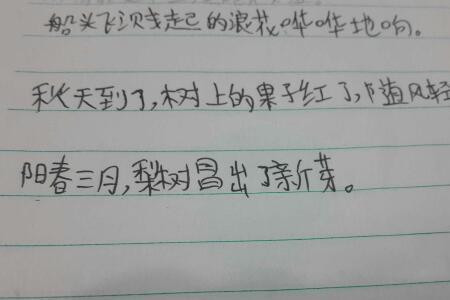 船头飞溅起的浪花哗哗地响。
秋天到了,树上的果子红了,随风轻
阳春三月,梨树冒出了新芽。